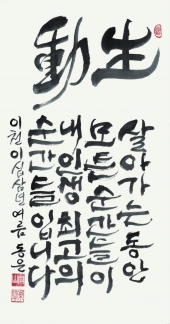 生動
살아가는 동안
모든 순간들이
내 인생 최고의
순간들입니다
이천이십삼년 여름 동은